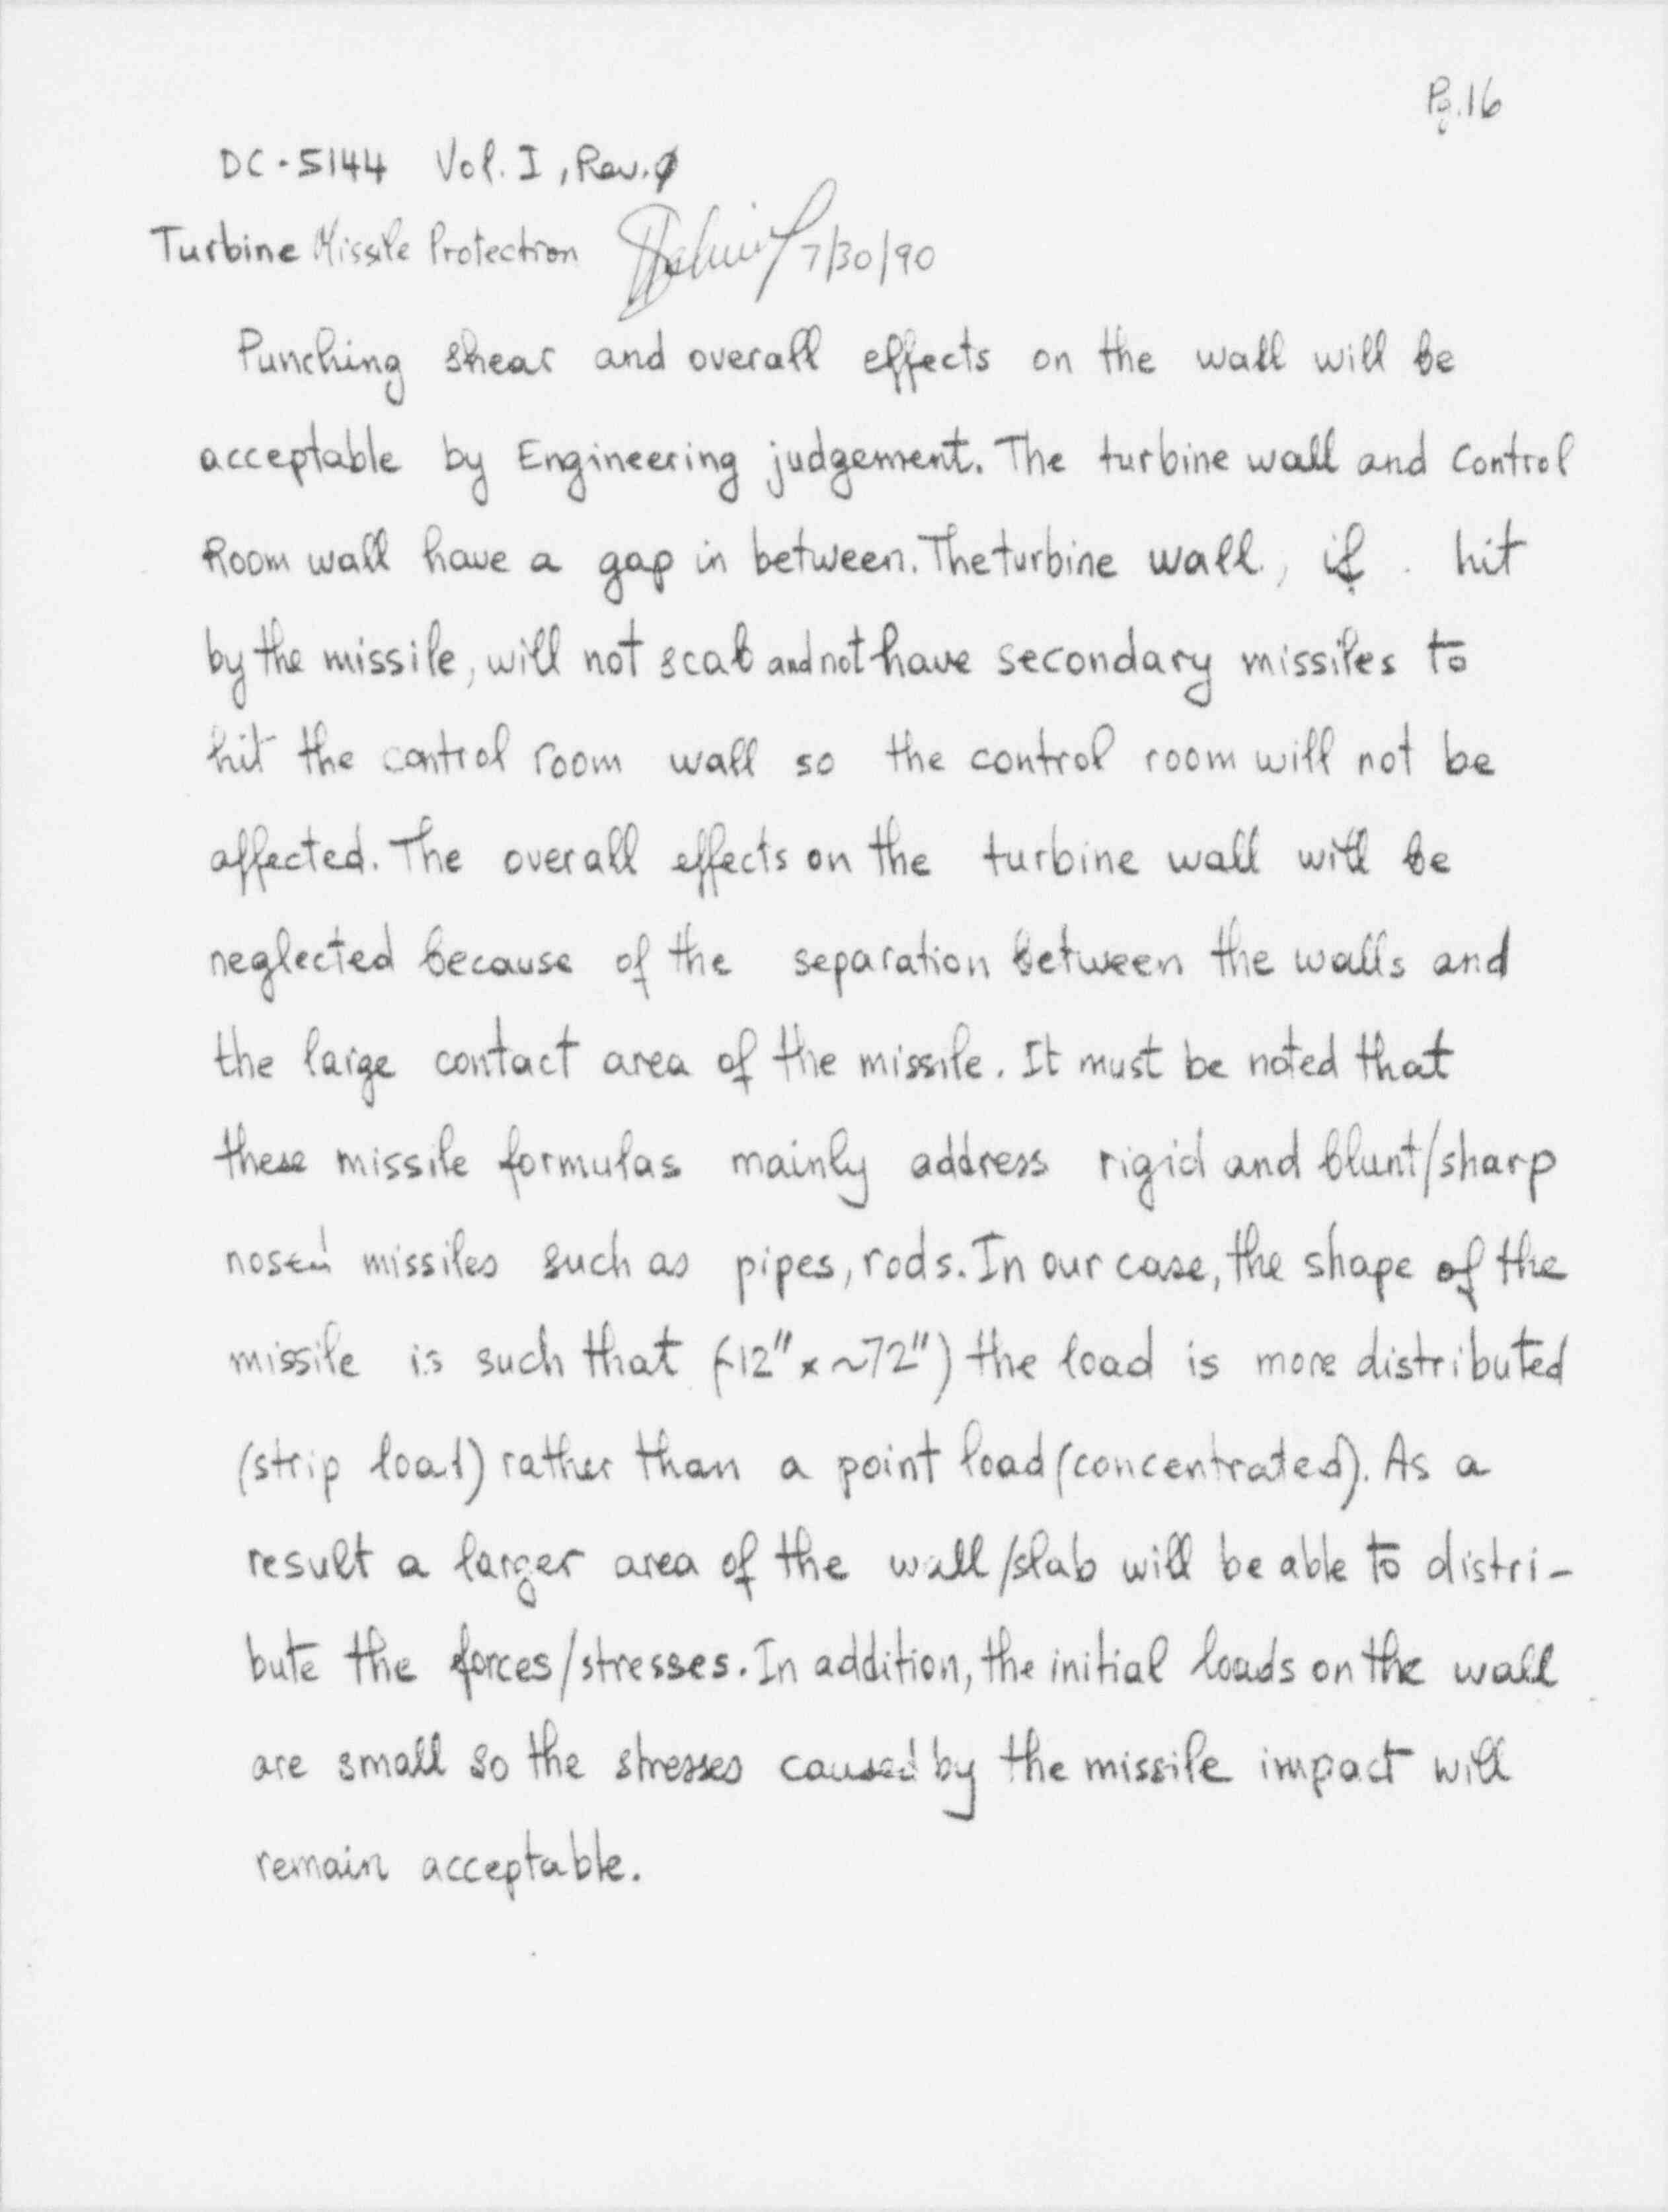 Pg.16
DC-5144 Vol. I, Rev.0
Turbine Missile Protection 7/30/90
Punching shear and overall effects on the wall will be
acceptable by Engineering judgement. The turbine wall and Control
Room wall have a gap in between. The turbine wall, if hit
by the missile, will not scab and not have secondary missiles to
hit the control room wall so the control room will not be
affected. The overall effects on the turbine wall will be
neglected because of the separation between the walls and
the large contact area of the missile. It must be noted that
these missile formulas mainly address rigid and blunt/sharp
nosed missiles such as pipes, rods. In our case, the shape of the
missile is such that (~12" x ~72") the load is more distributed
(strip load) rather than a point load (concentrated). As a
result a larger area of the wall/slab will be able to distri-
bute the forces/stresses. In addition, the initial loads on the wall
are small so the stresses caused by the missile impact will
remain acceptable.